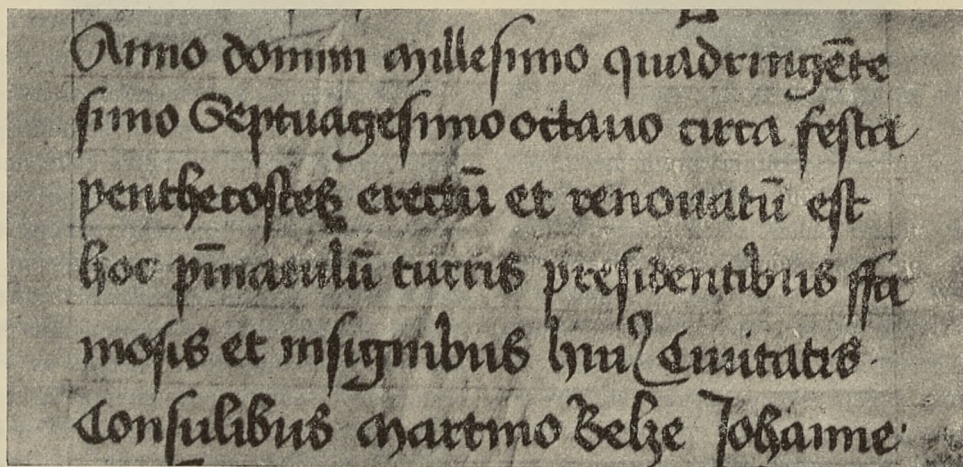 Anno domini Millesimo quadringēte
simo Septuagesimo octauo circa festa
penthecostes erectū et renouatū est
hoc pīnaculū turris presidentibus ffa
mosis et insignibus huiꝰ Ciuitatis
Consulibus Martino Belze Johanne